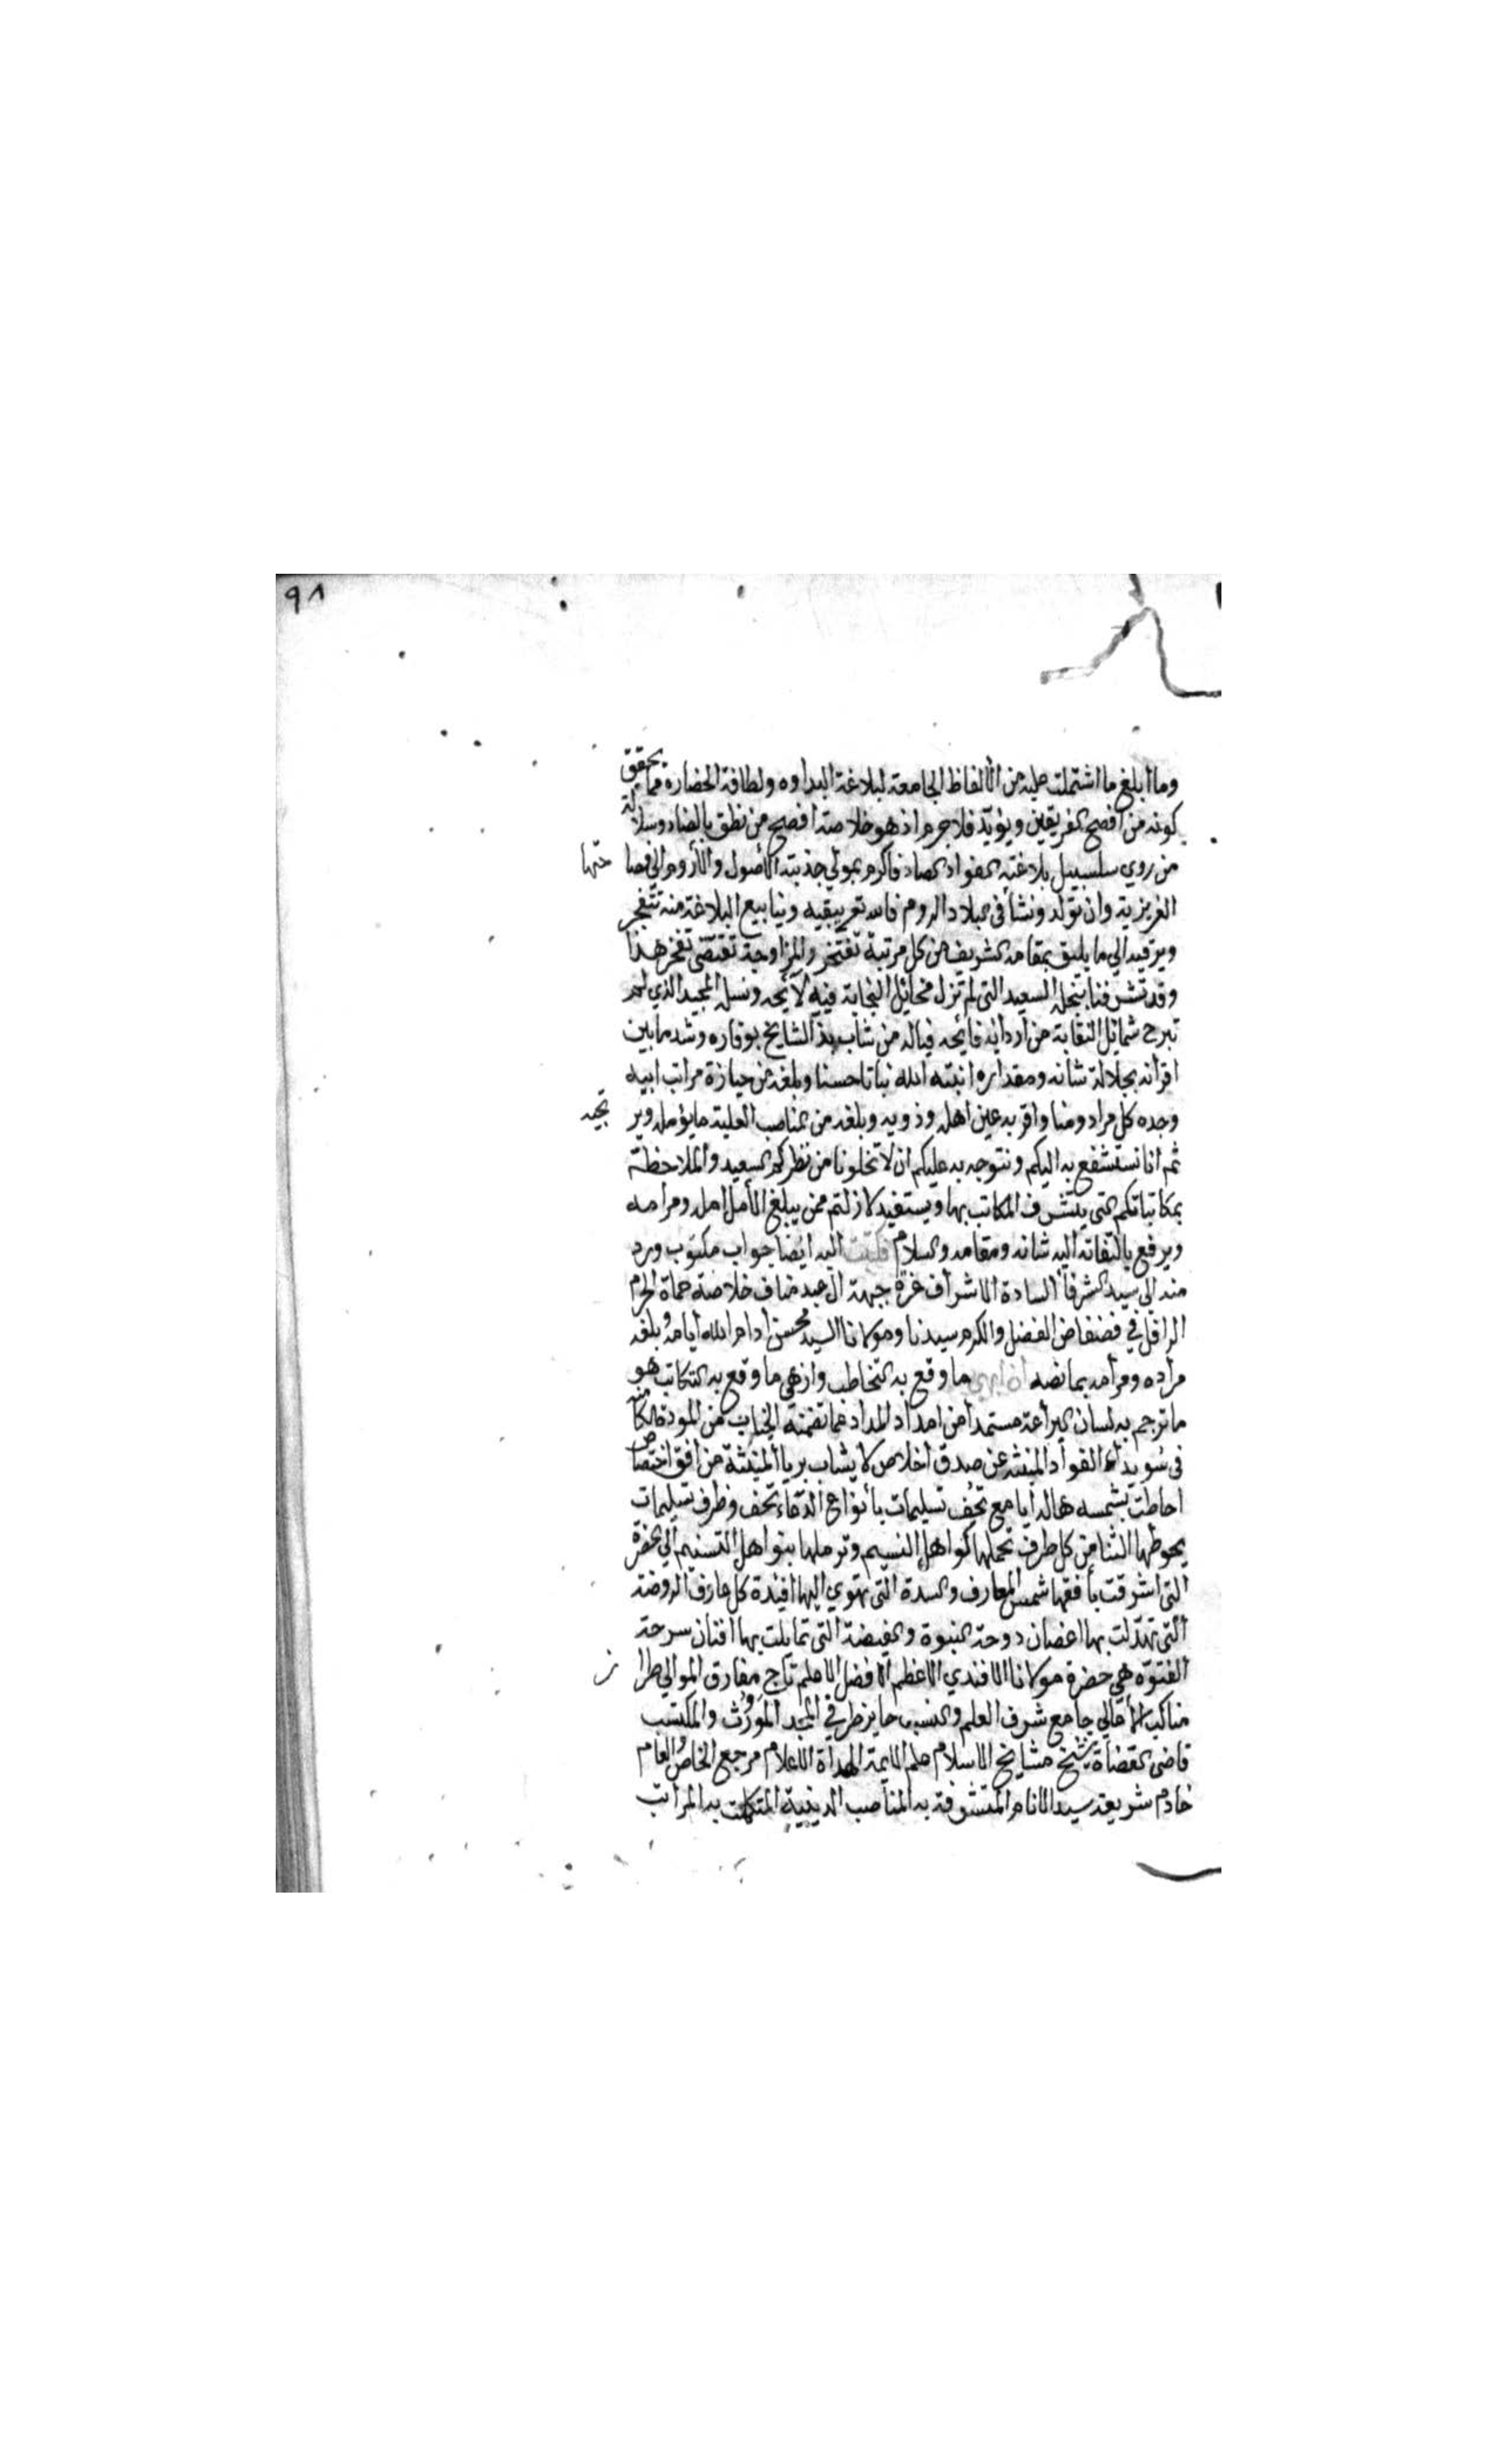 ٩٨
وما ابلغ ما اشتملت عليه من الالفاظ الجامعة لبلاغة البداوه ولطافة الحضاره مما يحقق
كونه من افصح الفريقين ويؤيد فلا جرم اذ هو خلاصة افصح من نطق بالضاد وسلالة
من روي سلسبيل بلاغته الفواد الصاد فاكرم بمولي جذبته الاصول والأروم الي فصاحتها
الغريزية وان تولد ونشأ في بلاد الروم فاسه تعريبقيه وينابيع البلاغة منه تتفجر
ويرقيه الي ما يليق بمقامه الشريف من كل مرتبة تفتخر والمزاوجة تقتضي تفخر هذا
وقد تشرفنا بنجله السعيد التي لم تزل مخائل النجابة فيه لائحه ونسله المجيد الذي لم
تبرح شمائل النقابة من اردانه فائحه فياله من شاب بذ المشايخ بوقاره وشد ما بين
اقرانه بجلالة شانه ومقداره انبته الله نباتا حسنا وبلغه من حيازة مراتب ابيه
وجده كل مراد ومنا واقر به عين اهله وذويه وبلغه من المناصب العلية ما يؤمله ويرتجيه
ثم انا نستشفع به اليكم ونتوجه به عليكم ان لا تخلونا من نظركم السعيد والملاحظة
بمكاتباتكم التي يتشرف المكاتب بها ويستفيد لا زلتم ممن يبلغ الأمل امله ومرامه
ويرفع بالتفاته اليه شانه ومقامه والسلام فكتبت اليه ايضا جواب مكتوب ورد
منه الي سيد الشرفا السادة الاشراف غرة جبهة ال عبد مناف خلاصة حماة الحرم
الرافل في فضفاض الفضل والكرم سيدنا ومولانا السيد محسن ادام الله ايامه وبلغه
مراده ومرامه بما نصه ان ابهي ما وقع به التخاطب وازهي ما وقع به التكاتب هو
ما ترجم به لسان اليراعة مستمدا من امداد المداد عما تضمنه الجناب من المودة الكامنه
في سويداء الفواد المنشه عن صدق اخلاص لا يشاب بريا المنبثة من افق اختصاص
احاطت بشمسه هالة ايا مع تحف تسليمات بأنواع الدعاء تحف وطرف تسليمات
يحوطها الثنا من كل طرف تحملها كواهل النسيم وترملها بنواهل التسنيم الي الحضرة
التي اشرقت بأفقها شمس المعارف والسدة التي تهوي اليها افئدة كل عارف الروضة
التي تهدلت بها اغصان دوحة النبوة والغيضة التي تمايلت بها افنان سرحة
الفتوه هي حضرة مولانا الافندي الاعظم الافضل الاعلم تاج مفارق الموالي طراز
مناكب الأعالي جامع شرف العلم والنسب حايز طرفي المجد الموروث والمكتسب
قاضي القضاة شيخ مشايخ الاسلام علم الايمة الهداة الاعلام مرجع الخاص والعام
خادم شريعة سيد الانام المتشرفة به المناصب الدينية المتكلمت به المراتب